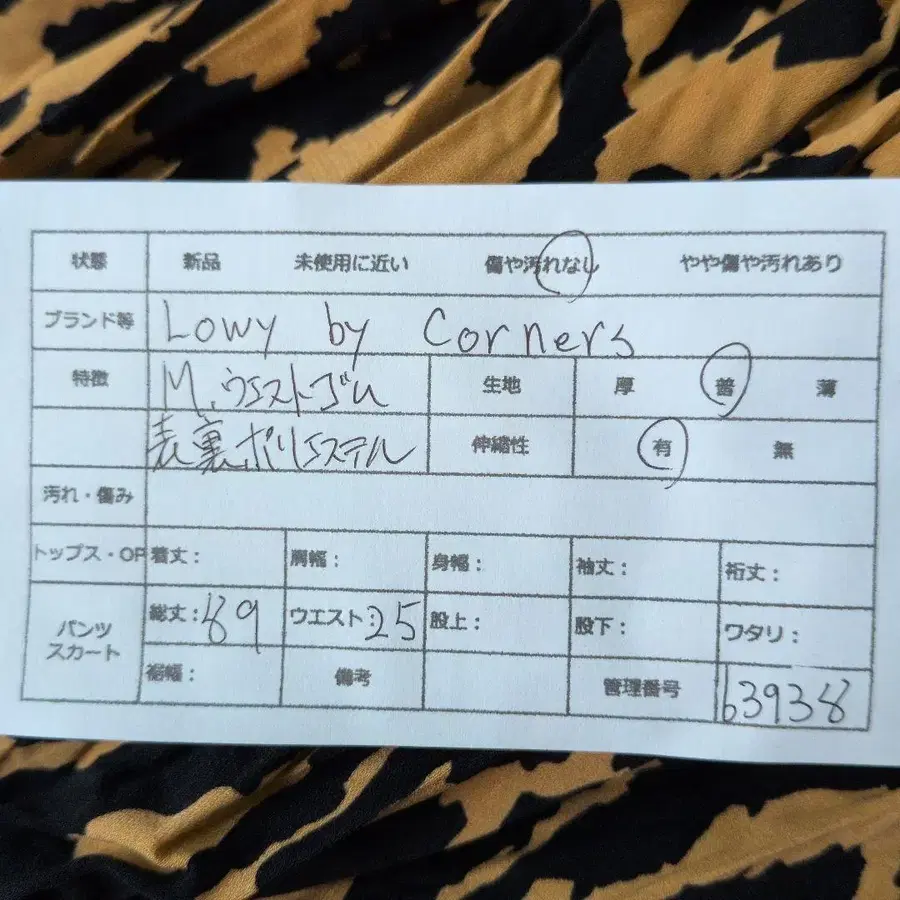 状態 新品 未使用に近い 傷や汚れなし やや傷や汚れあり
ブランド等 Lowy by Corners
特徴 M.ウエストゴム 生地 厚 普 薄
表裏ポリエステル 伸縮性 有 無
汚れ・傷み
トップス・OP 着丈： 肩幅： 身幅： 袖丈： 裄丈：
パンツ スカート 総丈：89 ウエスト：25 股上： 股下： ワタリ：
裾幅： 備考 管理番号 63938